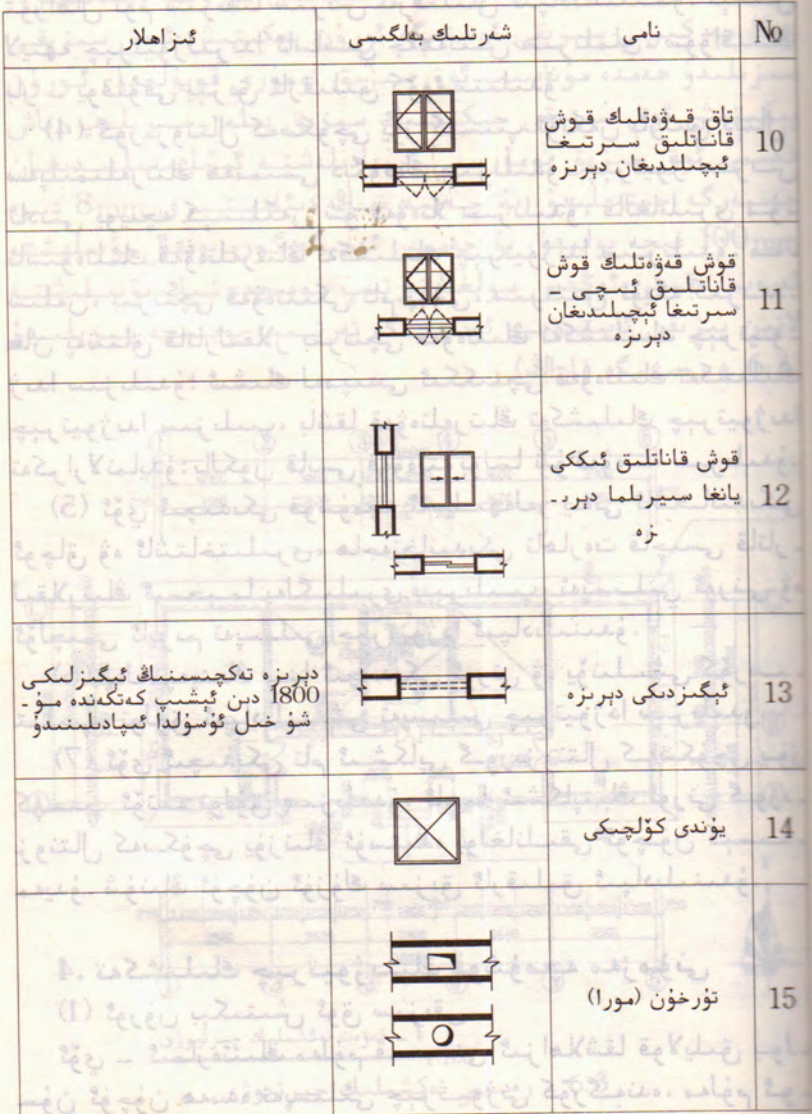 № نامى شەرتلىك بەلگىسى ئىزاھلار
10
تاق قەۋەتلىك قوش
قاناتلىق سىرتىغا
ئېچىلىدىغان دېرىزە
11
قوش قەۋەتلىك قوش
قاناتلىق ئىچى ـ
سىرتىغا ئېچىلىدىغان
دېرىزە
12
قوش قاناتلىق ئىككى
يانغا سىيرىلما دېرى ـ
زە
13
ئېگىزدىكى دېرىزە
دېرىزە تەكچىسىنىڭ ئېگىزلىكى
1800 دىن ئېشىپ كەتكەندە مۇ ـ
شۇ خىل ئۇسۇلدا ئىپادىلىنىدۇ
14
يۇندى كۆلچىكى
15
تۇرخۇن (مورا)